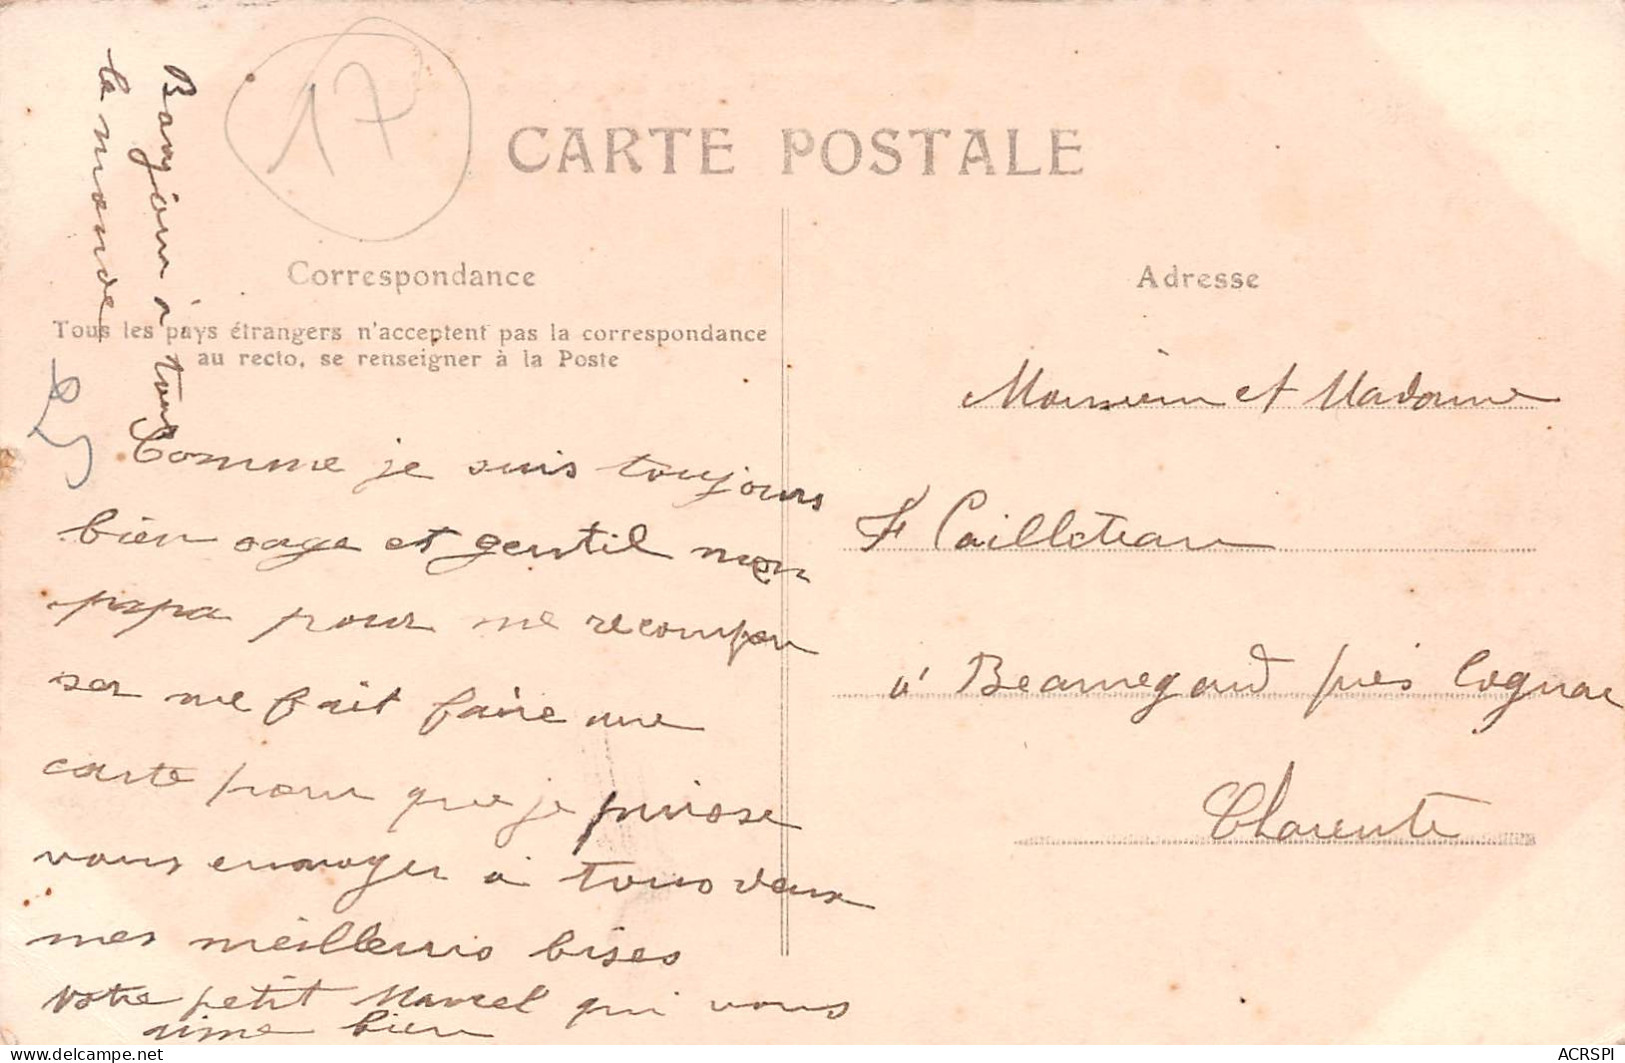 17
CARTE POSTALE
Bonjour à tous
le monde
Correspondance
Tous les pays étrangers n'acceptent pas la correspondance
au recto, se renseigner à la Poste
Comme je suis toujours
bien sage et gentil mon
papa pour me recompen
ser me fait faire une
carte pour que je puisse
vous envoyer à tous deux
mes meilleurs bises
votre petit Marcel qui vous
aime bien
Adresse
Monsieur et Madame
F Cailleteau
à Beauregard près Cognac
Charente
ACRSPI